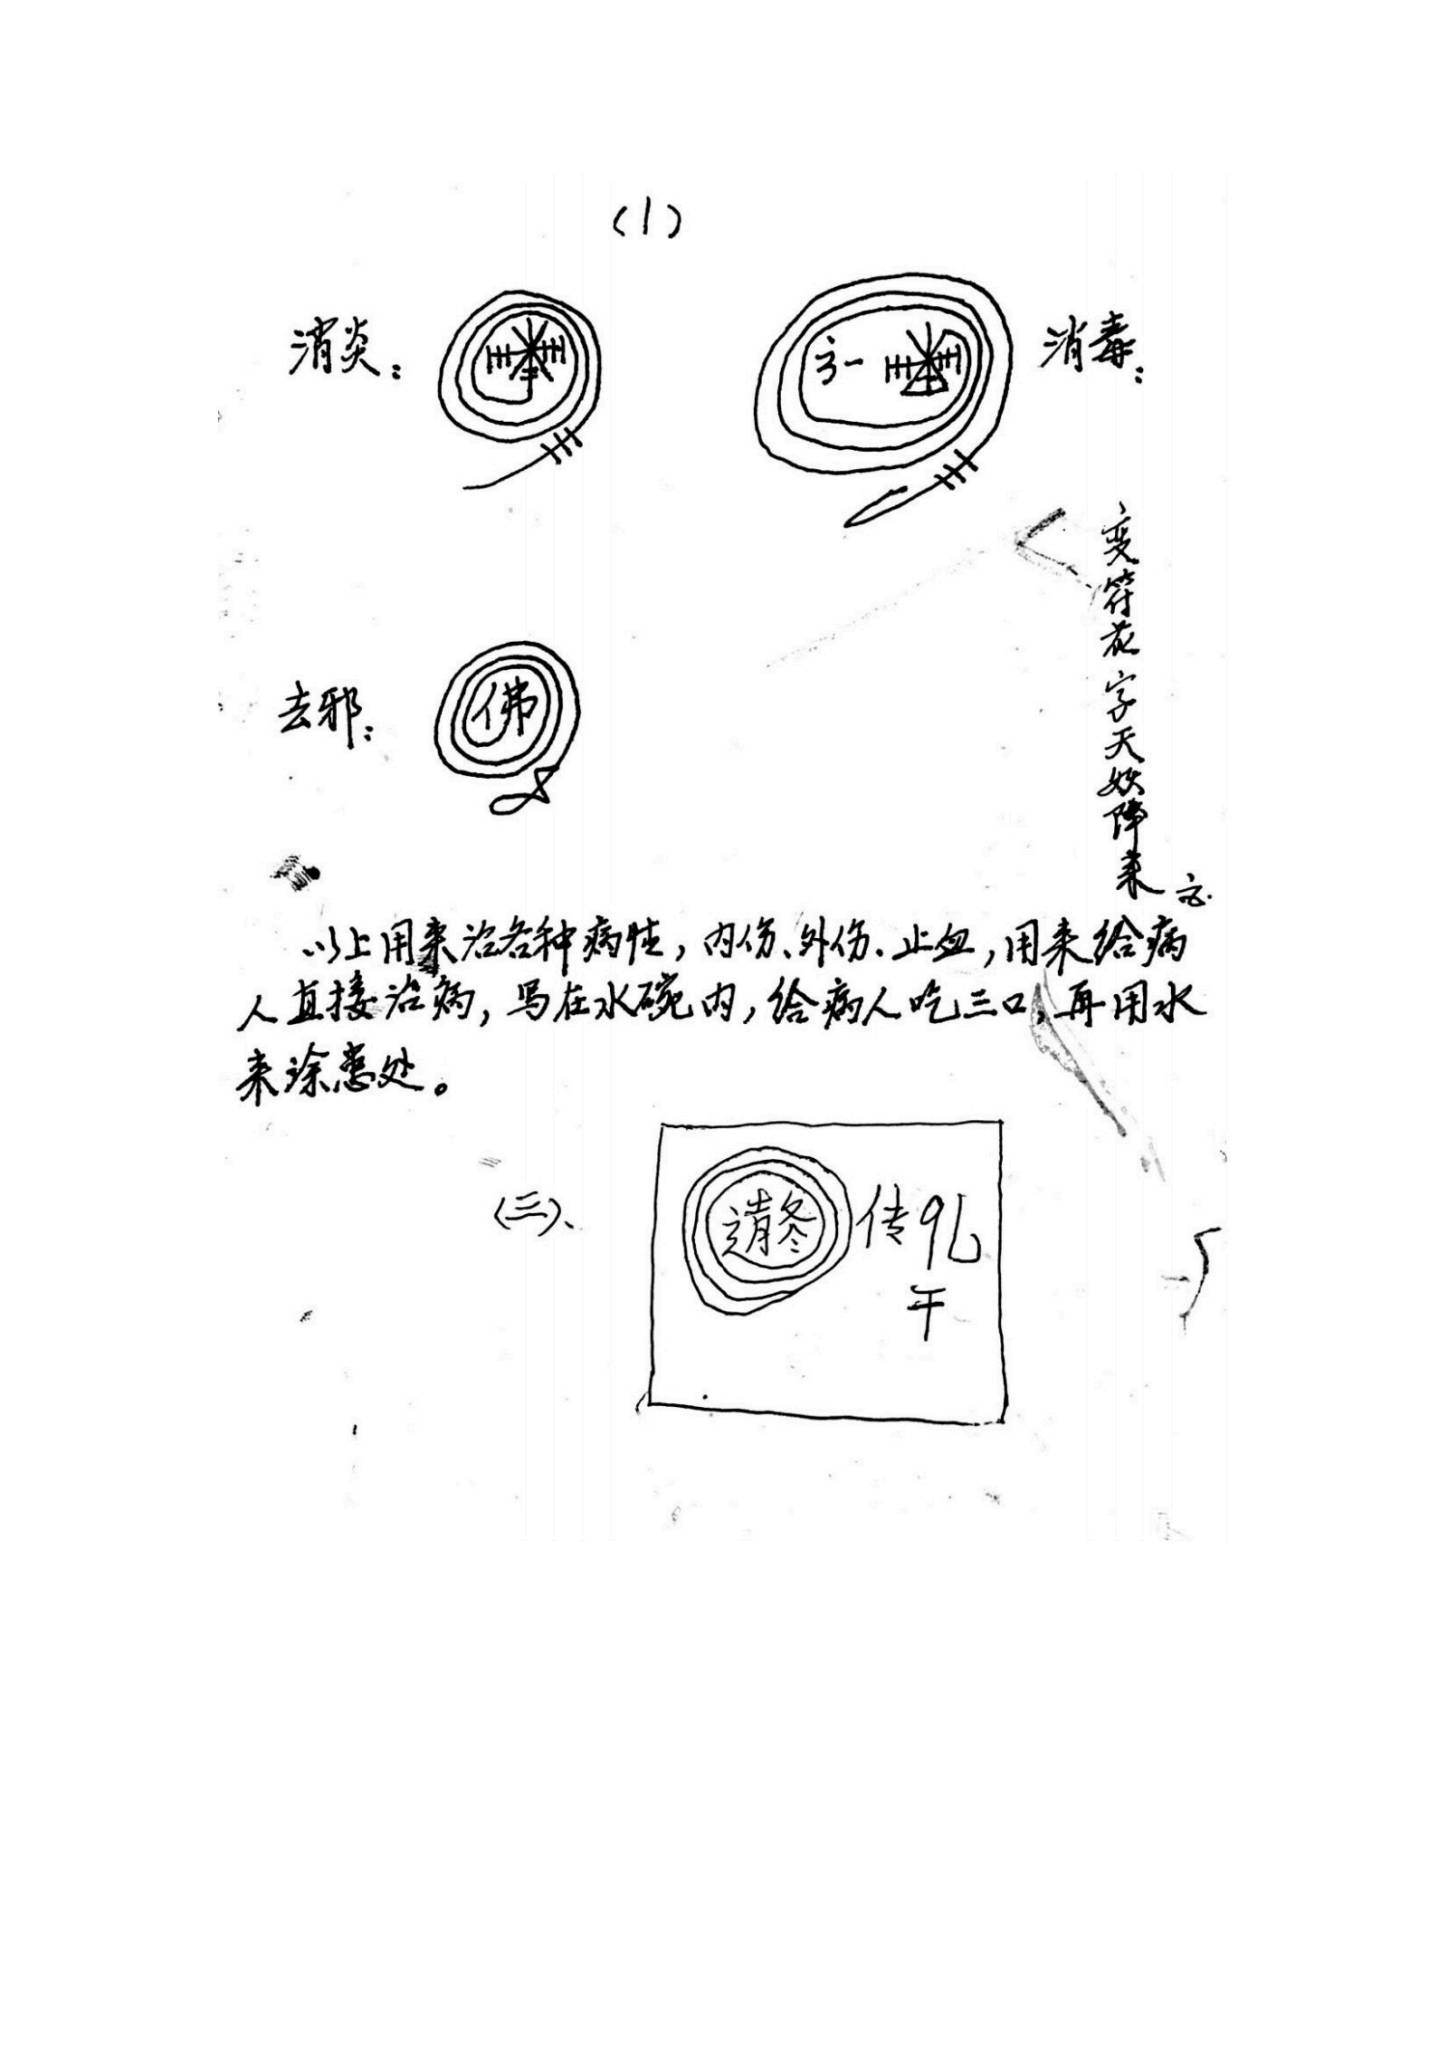 (1)
消炎：
消毒：
去邪：
佛
变符花字天妖降来
以上用来治各种病性，内伤、外伤、止血，用来给病
人直接治病，写在水碗内，给病人吃三口，再用水
来涂患处。
(三)、
传
午